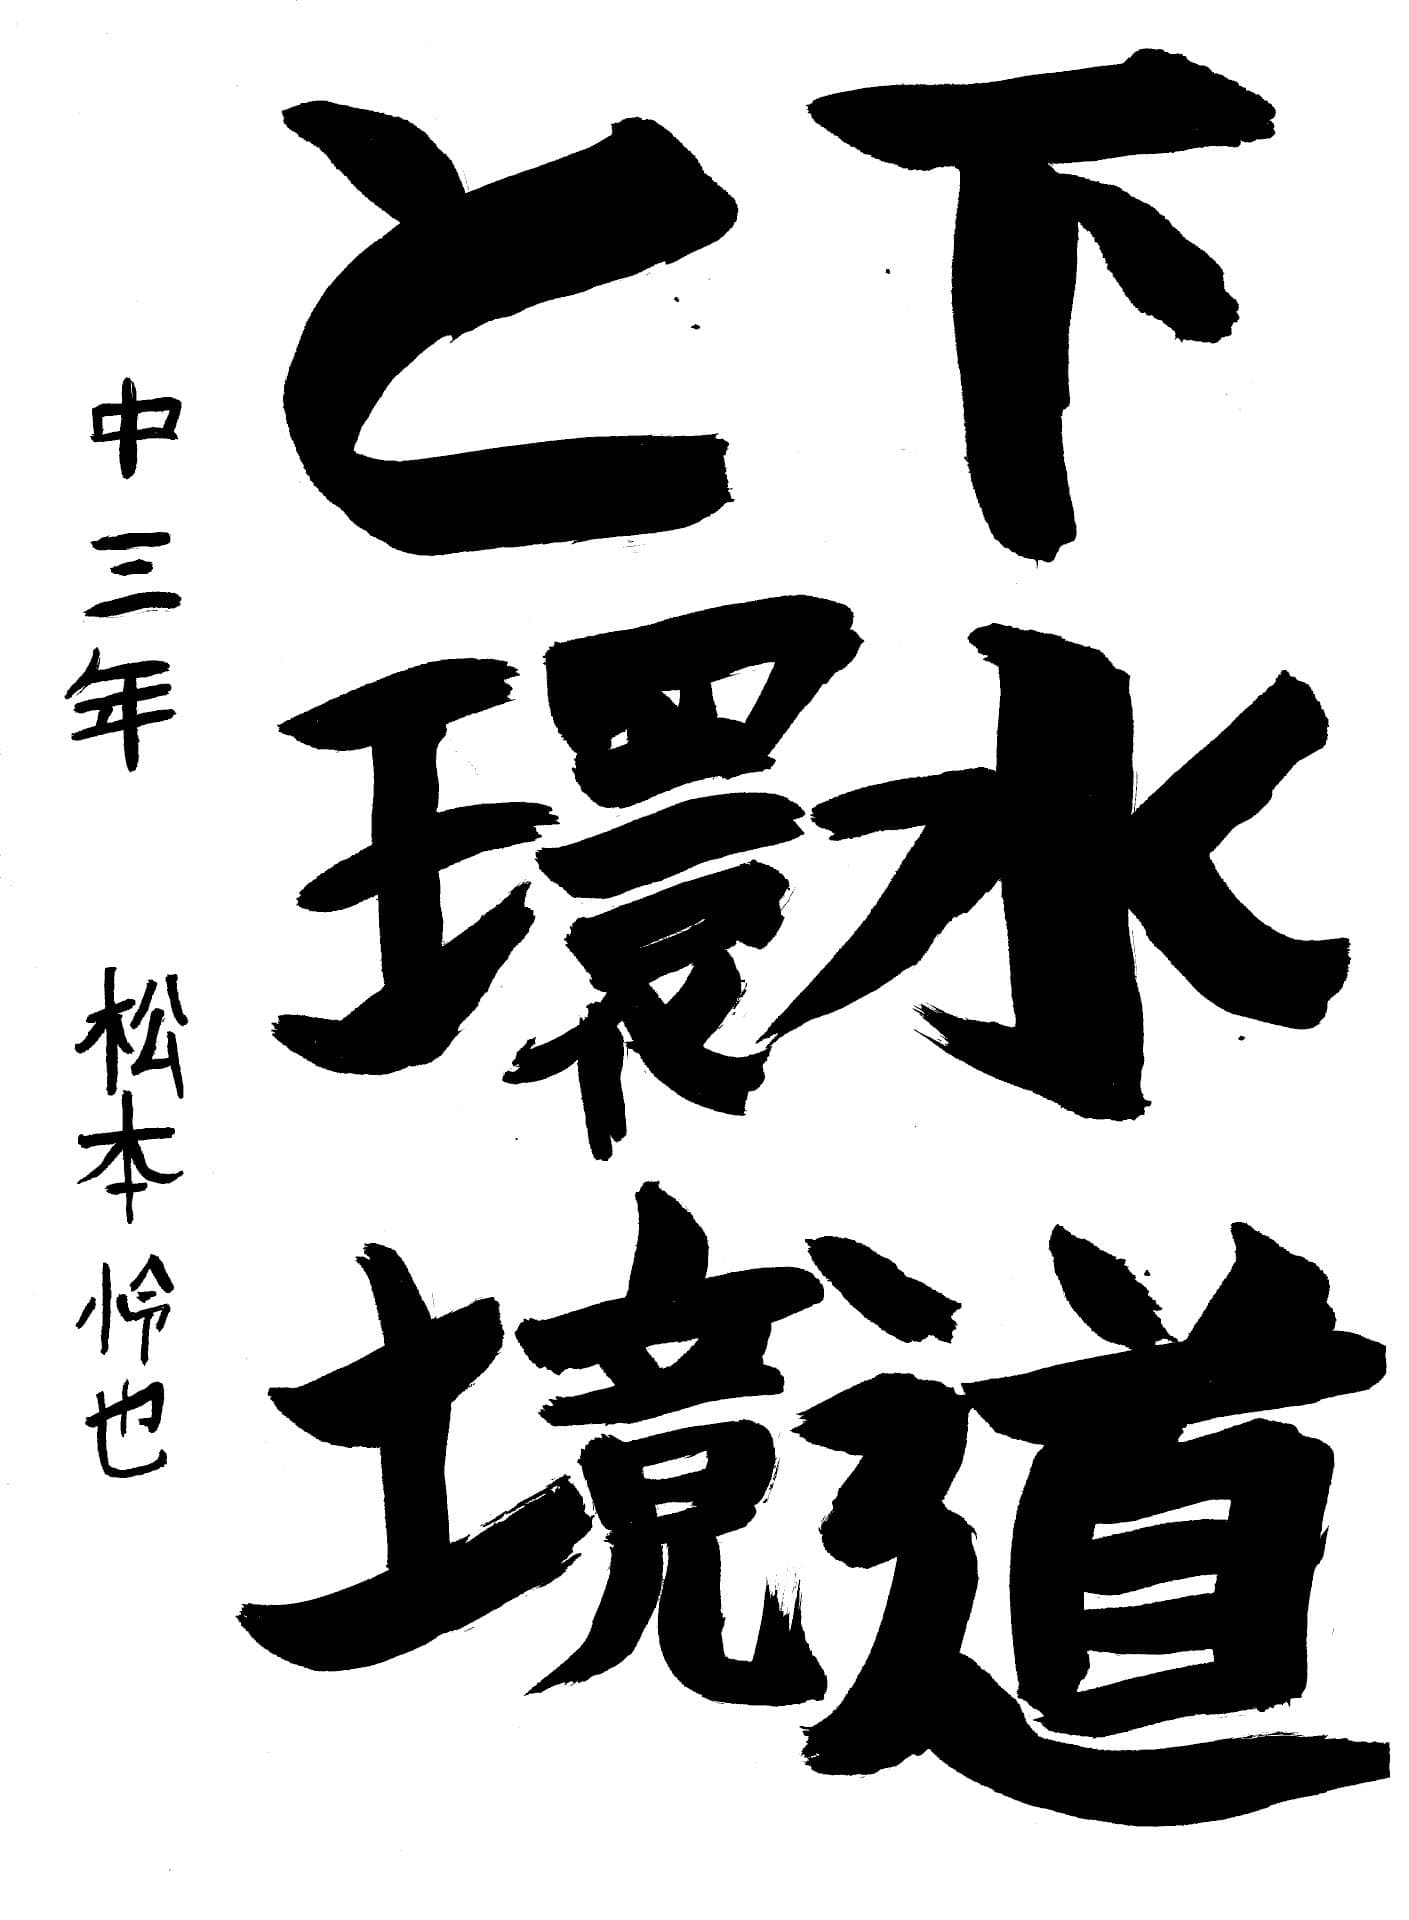 下水道
と環境
中三年 松本怜也